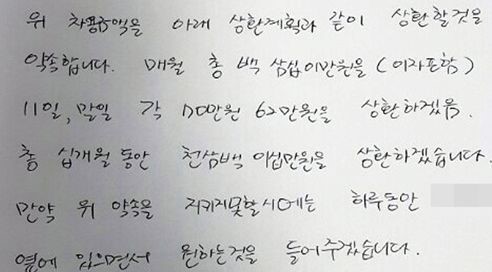 위 차용금액을 아래 상환계획과 같이 상환할것을
약속합니다. 매월 총 백 삼십이만원을 (이자포함)
11일, 말일 각 70만원 62만원을 상환하겠음.
총 십개월 동안 천삼백 이십만원을 상환하겠습니다.
만약 위 약속을 지키지못할시에는 하루동안
옆에 있으면서 원하는것을 들어주겠습니다.